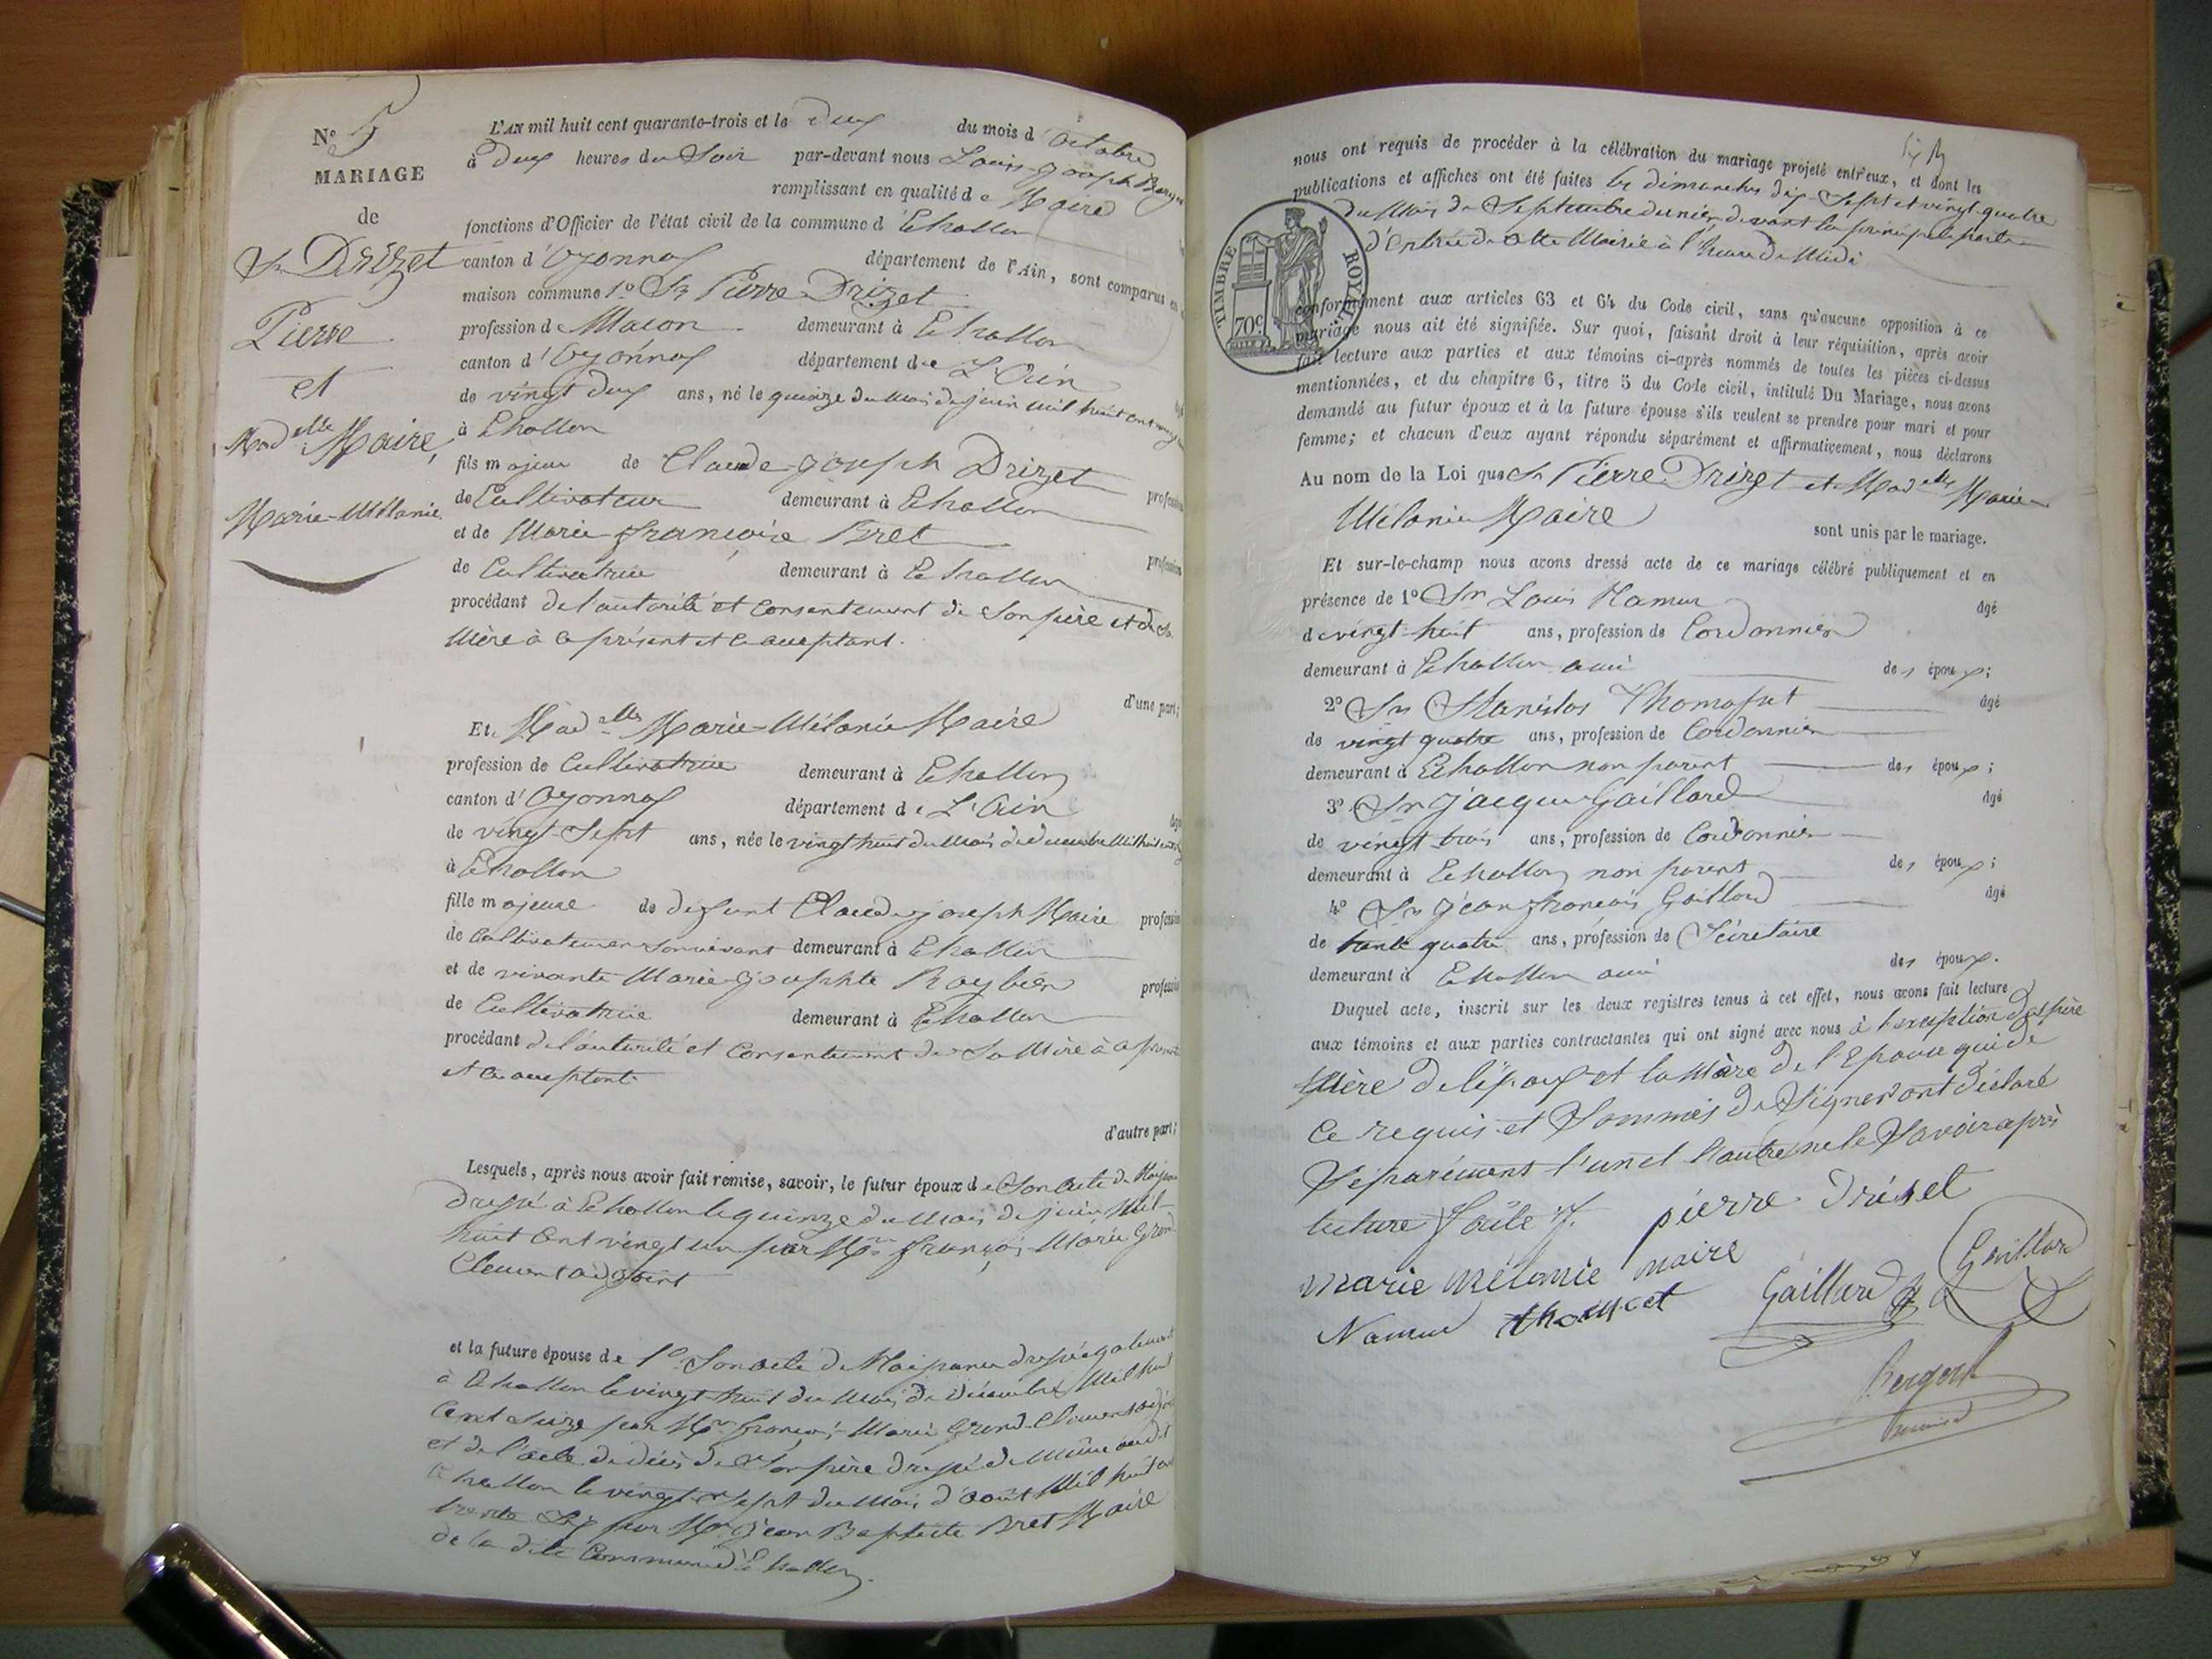 N.° 5
MARIAGE
de
Sr Drizet
Pierre
et
Mad.elle Maire,
Marie-Mélanie
L'AN mil huit cent quarante-trois et le deux du mois d'Octobre
à deux heures du Soir par-devant nous Louis-Joseph
remplissant en qualité de Maire
fonctions d'Officier de l'état civil de la commune d'Echallon
canton d'Oyonnax département de l'Ain, sont comparus en
maison commune 1.° Sr Pierre Drizet
profession de Maçon demeurant à Echallon
canton d'Oyonnax département de L'Ain
de vingt deux ans, né le quinze du Mois de juin mil huit cent vingt
à Echallon
fils majeur de Claude-Joseph Drizet
de Cultivateur demeurant à Echallon
et de Marie-françoise Bret
de Cultivatrice demeurant à Echallon
procédant de l'autorité et Consentement de Son père et de Sa
Mère à ce présent et ce acceptant.
d'une part;
Et Mad.elle Marie-Mélanie Maire
profession de Cultivatrice demeurant à Echallon
canton d'Oyonnax département de L'Ain
de vingt-Sept ans, née le vingt huit du Mois de décembre Mil huit cent
à Echallon
fille majeure de defunt Claude-joseph Maire
de Cultivateur de Son vivant demeurant à Echallon
et de vivante Marie-josephte Roybier
de Cultivatrice demeurant à Echallon
procédant de l'autorité et Consentement de Sa Mère à ce présente
et ce acceptante
d'autre part;
Lesquels, après nous avoir fait remise, savoir, le futur époux de Son acte de Naissance
dressé à Echallon le quinze du Mois de juin Mil
huit Cent vingt un par Mr. françois-Marie Grand
Clement adjoint
et la future épouse de 1.° Son acte de Naissance dressé également
à Echallon le vingt-huit du Mois de décembre Mil huit
Cent Seize par Mr. françois-Marie Grand-Clement adjoint
et de l'acte de décès de Son père dressé de Même audit
Echallon le vingt-Sept du Mois d'août Mil huit cent
trente Six par Mr. Jean Baptiste Bret Maire
de la dite Commune d'Echallon.
nous ont requis de procéder à la célébration du mariage projeté entr'eux, et dont les
publications et affiches ont été faites les dimanches dix-Sept et vingt-quatre
du Mois de Septembre dernier devant la principale porte
d'Entrée de cette Mairie à l'heure de Midi
TIMBRE ROYAL
70c
conformément aux articles 63 et 64 du Code civil, sans qu'aucune opposition à ce
mariage nous ait été signifiée. Sur quoi, faisant droit à leur réquisition, après avoir
fait lecture aux parties et aux témoins ci-après nommés de toutes les pièces ci-dessus
mentionnées, et du chapitre 6, titre 5 du Code civil, intitulé Du Mariage, nous avons
demandé au futur époux et à la future épouse s'ils veulent se prendre pour mari et pour
femme; et chacun d'eux ayant répondu séparément et affirmativement, nous déclarons
Au nom de la Loi que Sr Pierre Drizet et Mad.elle Marie
Mélanie Maire sont unis par le mariage.
Et sur-le-champ nous avons dressé acte de ce mariage célébré publiquement et en
présence de 1.° Sr Louis Namur âgé
de vingt-huit ans, profession de Cordonnier
demeurant à Echallon ami des époux;
2.° Sr Stanislas Thomasset âgé
de vingt quatre ans, profession de Cordonnier
demeurant à Echallon non parent des époux;
3.° Sr Jacques Gaillard âgé
de vingt trois ans, profession de Cordonnier
demeurant à Echallon non parent des époux;
4.° Sr Jean françois Gaillard âgé
de trente quatre ans, profession de Sécretaire
demeurant à Echallon ami des époux.
Duquel acte, inscrit sur les deux registres tenus à cet effet, nous avons fait lecture
aux témoins et aux parties contractantes qui ont signé avec nous à l'exception des père
Mère de l'époux et la Mère de l'Epouse qui de
Ce requis et Sommés de Signer ont déclaré
Séparément l'un et l'autre ne le Savoir après
lecture faite
pierre Drizet
marie mélanie maire
Gaillard
Gaillard
Namur